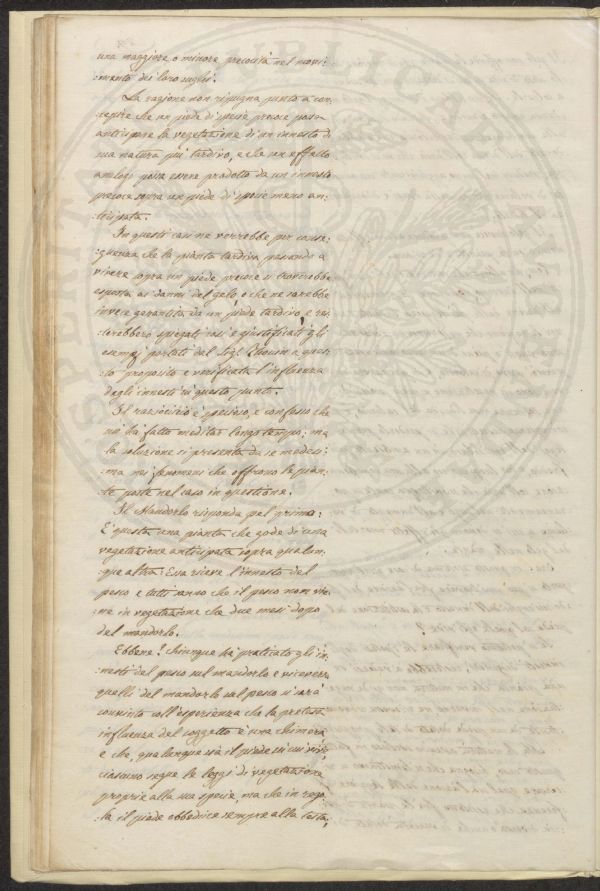 una maggiore o minore precocità nel movi:
:mento dei loro sughi.
La ragione non ripugna punto a con:
:cepire che un piede di specie precoce possa
anticipare la vegetazione di un innesto di
sua natura più tardivo, e che un effetto
analogo possa essere prodotto da un innesto
precoce sopra un piede di specie meno an:
:ticipata.
In questi casi ne verrebbe per conse:
:guenza che la pianta tardiva passando a
vivere sopra un piede precoce si troverebbe
esposta ai danni del gelo, o che ne sarebbe
invece garantita da un piede tardivo, e res:
:terebbero spiegati così e giustificati gli
esempj portati dal Sig. Thouin a ques:
:to proposito e verificata l'influenza
degli innesti su questo punto.
Il raziocinio è specioso, e confesso che
mi ha fatto meditar longo tempo: ma
la soluzione si presenta da se medesi:
:ma nei fenomeni che offrono le pian:
:te poste nel caso in questione.
Il Mandorlo risponda pel primo:
E' questa una pianta che gode di una
vegetazione anticipata sopra qualun:
que altra: Essa riceve l'innesto del
pesco e tutti sanno che il pesco non vie:
:ne in vegetazione che due mesi dopo
del mandorlo.
Ebbene! chiunque ha praticato gli in:
:nesti del pesco sul mandorlo e viceversa
quelli del mandorlo sul pesco si sarà
convinto coll'esperienza che la pretesa
influenza del soggetto è una chimera
e che, qualunque sia il piede su cui vive,
ciascuno segue le leggi di vegetazione
proprie alla sua specie, ma che in rego:
:la il piede obbedisce sempre alla testa,